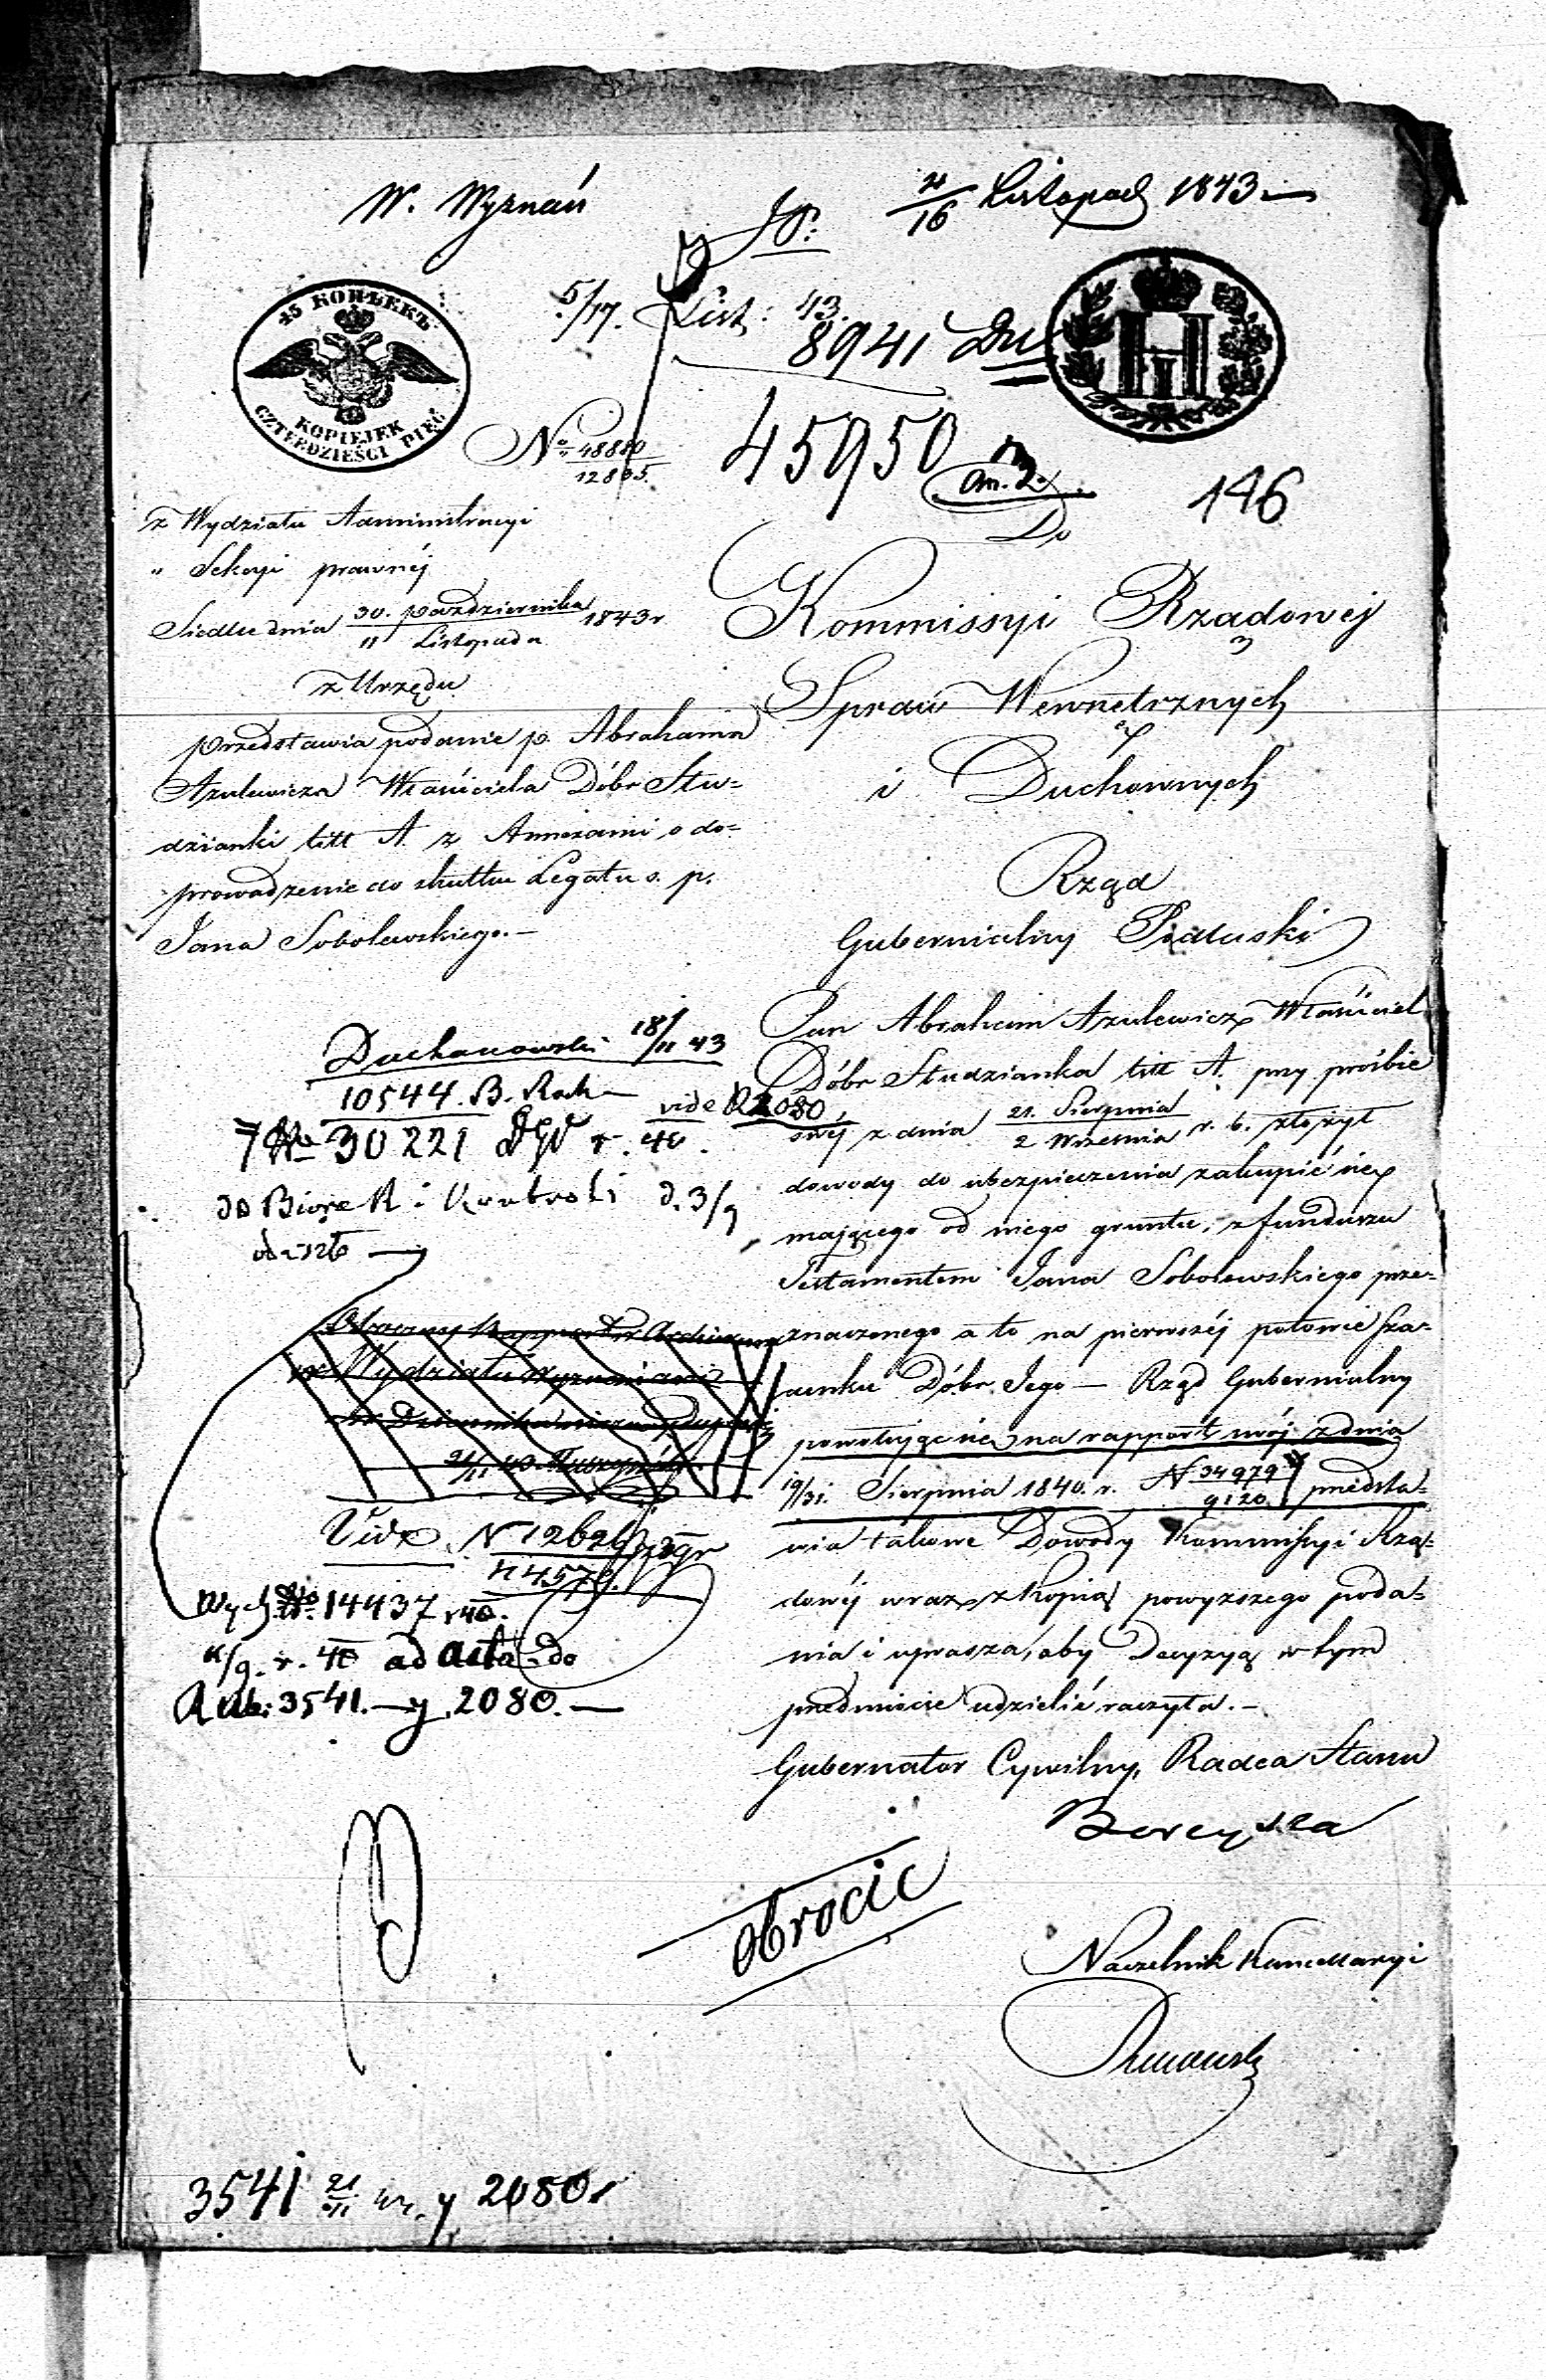 W. Wyznań
4/16 Listopad 1843
5/17. List: 43.
8941
45 КОПѢЕКЪ
KOPIEJEK
CZTERDZIEŚCI PIĘĆ
H I
No. 48880
12805.
45950
146
z Wydziału Administracyi
" Sekcyi prawnéj
Siedlce dnia 30. października / 11 Listopada 1843 r
z Urzędu
przedstawia podanie p. Abrahama
Azulewicza Właściciela Dóbr Stu-
dzianki litt A. z Annexami o do-
prowadzenie do skutku Legatu s. p.
Jana Sobolewskiego.—
Do
Kommissyi Rządowéj
Spraw Wewnętrznych
i Duchownych
Rząd
Gubernialny Podlaski
Pan Abraham Azulewicz Właściciel
Dóbr Studzianka litt A. przy prośbie
swéj z dnia 21. Sierpnia / 2 Września r. b. złożył
dowody do ubezpieczenia zakupić się
mającego od niego gruntu, z funduszu
Testamentem Jana Sobolewskiego prze-
znaczonego a to na pierwszéj połowie sza-
cunku Dóbr Jego — Rząd Gubernialny
powołując się na rapport swój z dnia
19/31. Sierpnia 1840. r. N 34979 / 9120 przedsta-
wia takowe Dowody Kommissyi Rzą-
dowéj wraz z kopią powyższego poda-
nia i uprasza, aby Decyzyą w tym
przedmiocie udzielić raczyła.—
Gubernator Cywilny, Radca Stanu
Naczelnik Kancellaryi
18/11 43
10544. B.
vide 2080
No 30221 r. 40.
do Bióra K i Kontroli d. 3/9
Wydziału Wyznań
Vide N 12626
14437 r 40.
r. 40 ad acta do
3541. — y 2080. —
obrócić
3541 21/11 y 2080